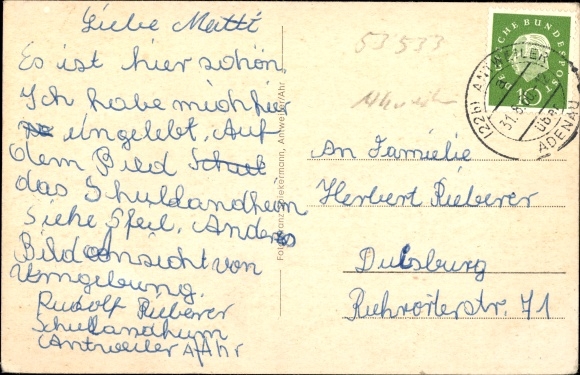 Liebe Mutti
Es ist hier schön,
Ich habe mich hier
eingelebt, Auf
dem Bied Schuel
das Schullandheim
Siehe Pfeil, Anderes
Bild Ansicht von
Umgebung.
Rudolf Rieberer
Schullandheim
Antweiler A/Ahr
53533
Ahrweiler
(22b) ANTWEILER
31.8.
über
ADENAU
DEUTSCHE BUNDESPOST
10
An Familie
Herbert Rieberer
Duisburg
Ruhrorterstr. 71
Antweiler/Ahr